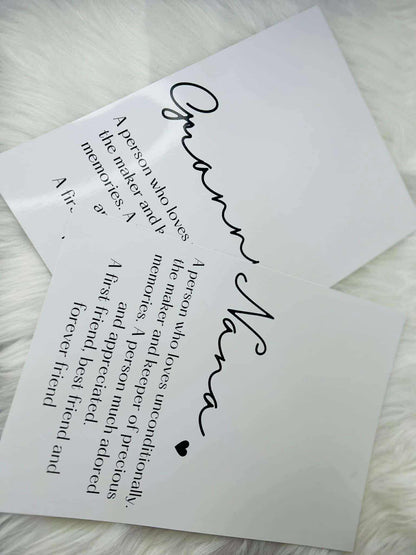 Grann
A person who loves
the maker and k
memories. A
A firs
Nana ♥
A person who loves unconditionally.
the maker and keeper of precious
memories. A person much adored
and appreciated.
A first friend, best friend and
forever friend